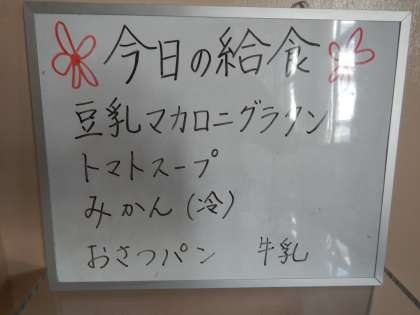 今日の給食
豆乳マカロニグラタン
トマトスープ
みかん(冷)
おさつパン 牛乳